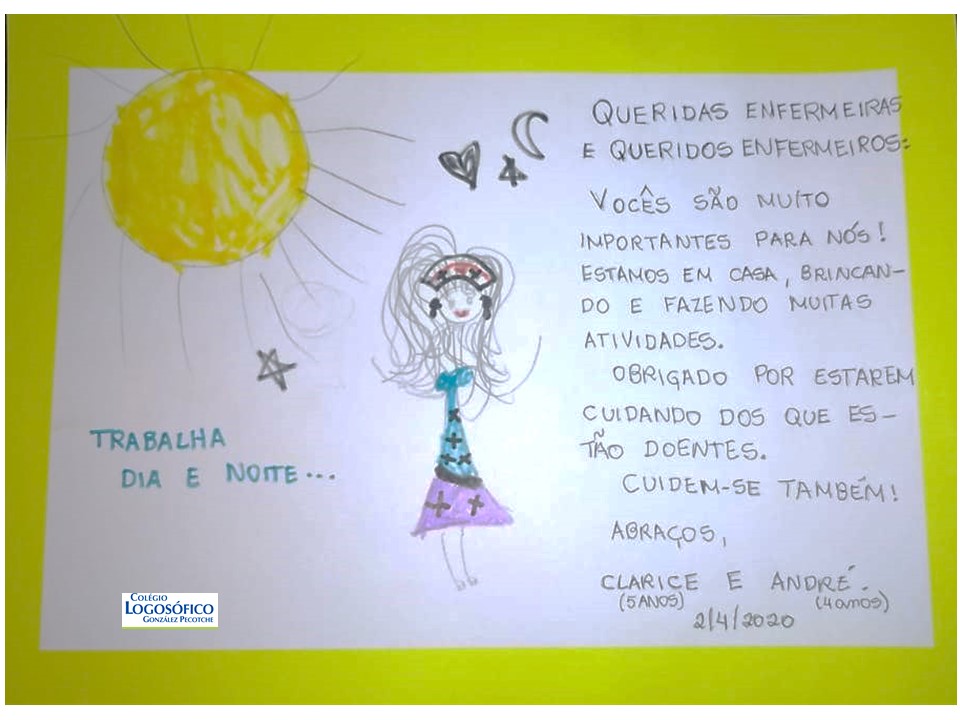 QUERIDAS ENFERMEIRAS
E QUERIDOS ENFERMEIROS:
VOCÊS SÃO MUITO
IMPORTANTES PARA NÓS!
ESTAMOS EM CASA, BRINCAN-
DO E FAZENDO MUITAS
ATIVIDADES.
OBRIGADO POR ESTAREM
CUIDANDO DOS QUE ES-
TÃO DOENTES.
CUIDEM-SE TAMBÉM!
ABRAÇOS,
CLARICE E ANDRÉ.
(5 ANOS) (4 anos)
2/4/2020
TRABALHA
DIA E NOITE...
COLÉGIO
LOGOSÓFICO
GONZÁLEZ PECOTCHE